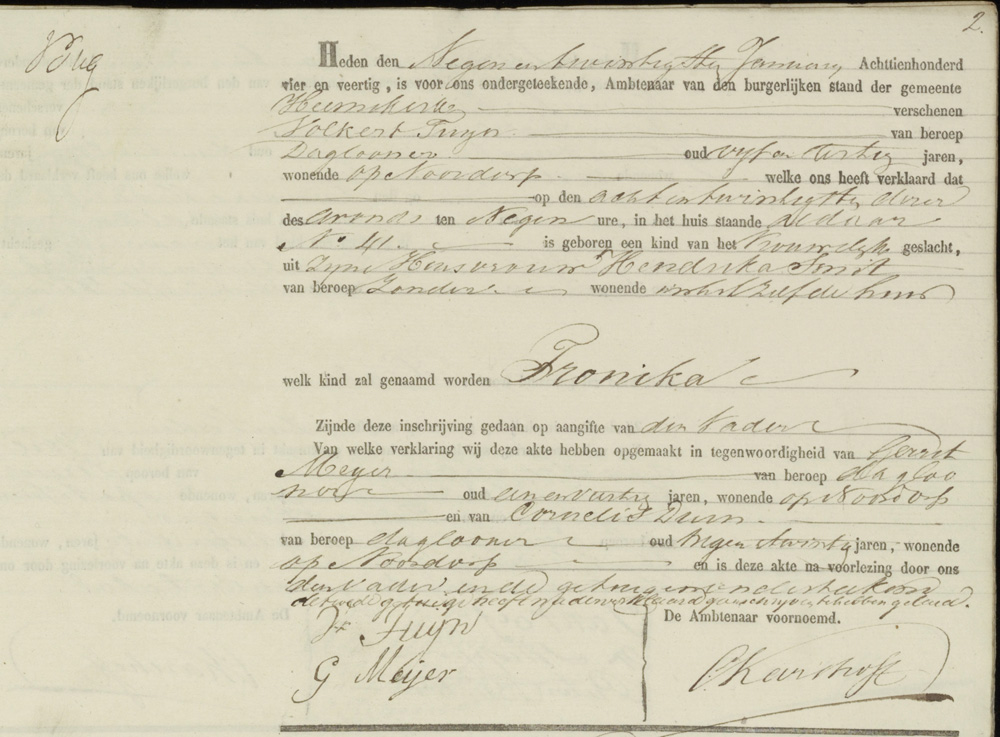 2.
Heden den Negen en twintigste January Achttienhonderd
vier en veertig, is voor ons ondergeteekende, Ambtenaar van den burgerlijken stand der gemeente
Heemskerk verschenen
Volkert Tuyn van beroep
Daglooner oud vyf en dertig jaren,
wonende op Noordorp welke ons heeft verklaard dat
op den acht en twintigste dezer
des avonds ten Negen ure, in het huis staande aldaar
No. 41. is geboren een kind van het Vrouwelyk geslacht,
uit Zyne Huisvrouw Hendrika Smit
van beroep Zonder wonende in het zelfde huis
welk kind zal genaamd worden Fronika
Zijnde deze inschrijving gedaan op aangifte van den Vader
Van welke verklaring wij deze akte hebben opgemaakt in tegenwoordigheid van Gerrit
Meyer van beroep dagloo
ner oud een en veertig jaren, wonende op Noordorp
en van Cornelis Duin
van beroep daglooner oud Negen en twintig jaren, wonende
op Noordorp en is deze akte na voorlezing door ons
den Vader en de getuige onderteekend
de tweede getuige heeft verklaard geen schryven te hebben geleerd.
De Ambtenaar voornoemd.
V Tuyn
G Meijer